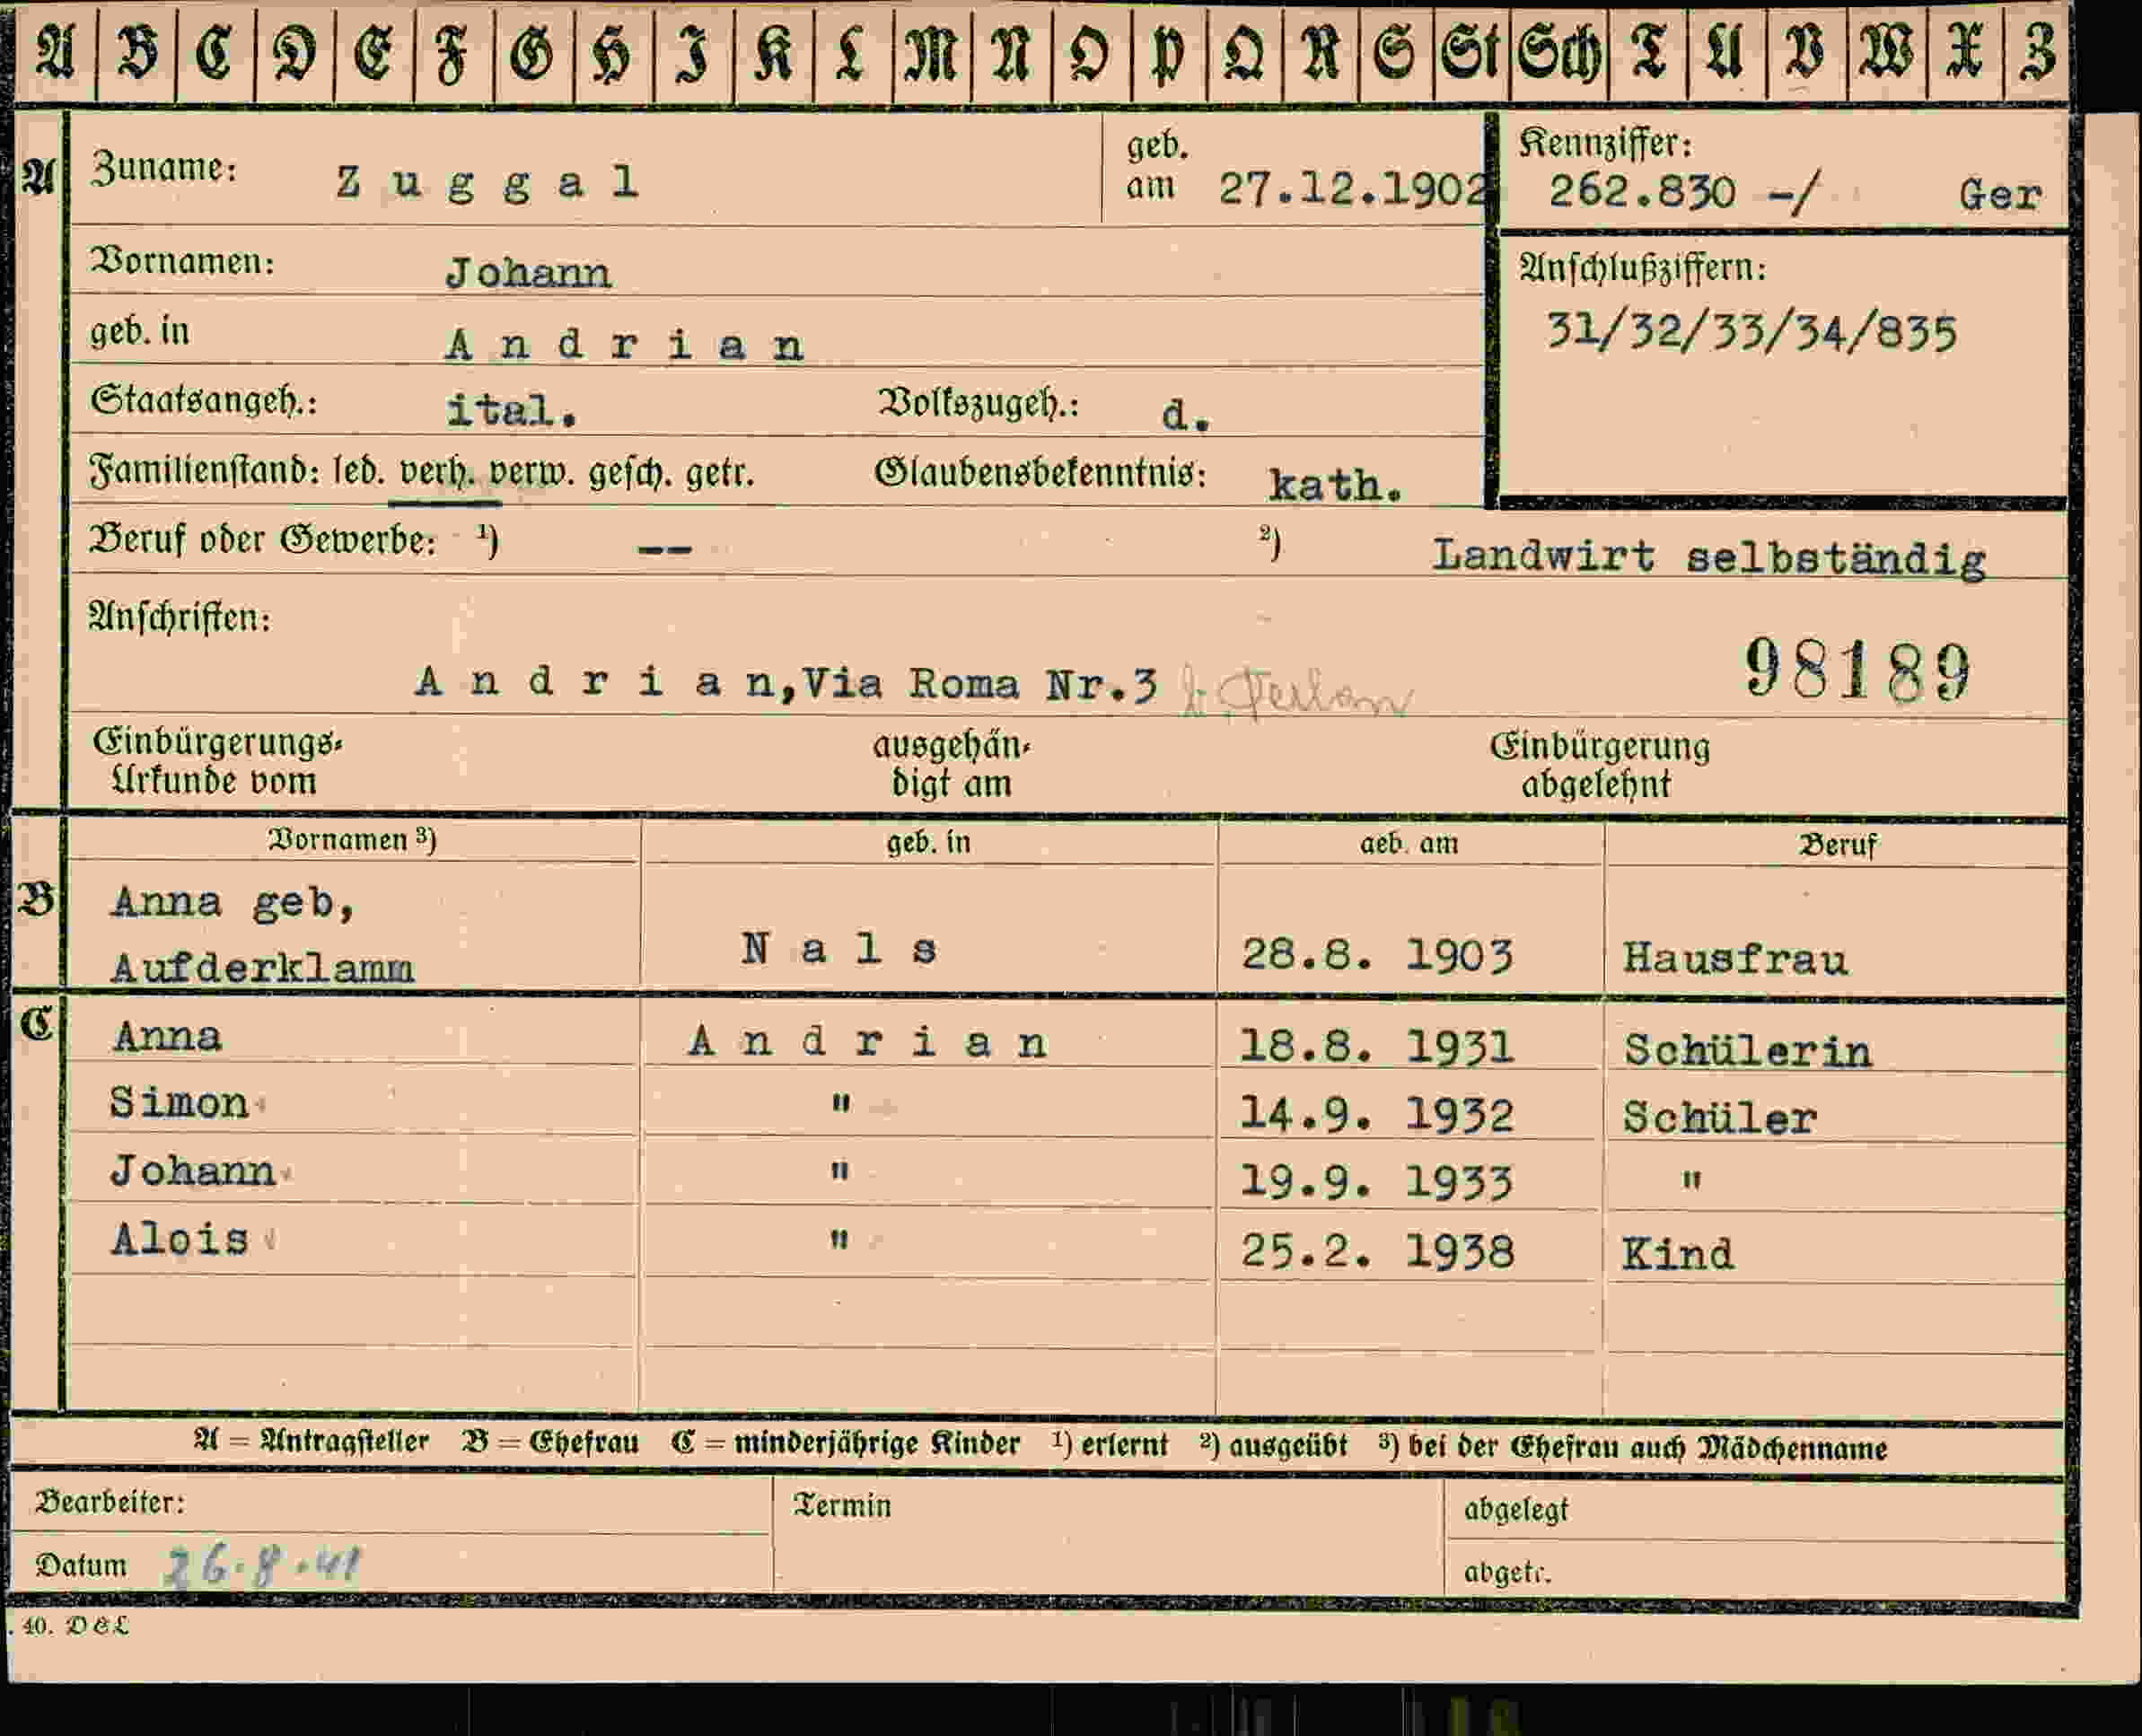 A B C D E F G H I K L M N O P Q R S St Sch T U V W X Z
A Zuname: Zuggal geb. am 27.12.1902 Kennziffer: 262.830 -/ Ger
Vornamen: Johann Anschlußziffern:
geb. in Andrian 31/32/33/34/835
Staatsangeh.: ital. Volkszugeh.: d.
Familienstand: led. verh. verw. gesch. getr. Glaubensbekenntnis: kath.
Beruf oder Gewerbe: ¹) -- ²) Landwirt selbständig
Anschriften:
Andrian, Via Roma Nr.3 b. Terlan 98189
Einbürgerungs- ausgehän- Einbürgerung
Urkunde vom digt am abgelehnt
Vornamen ³) geb. in geb. am Beruf
B Anna geb,
Aufderklamm Nals 28.8. 1903 Hausfrau
C Anna Andrian 18.8. 1931 Schülerin
Simon " 14.9. 1932 Schüler
Johann " 19.9. 1933 "
Alois " 25.2. 1938 Kind
A = Antragsteller B = Ehefrau C = minderjährige Kinder ¹) erlernt ²) ausgeübt ³) bei der Ehefrau auch Mädchenname
Bearbeiter: Termin abgelegt
Datum 26.8.41 abgetr.
. 40. D&L